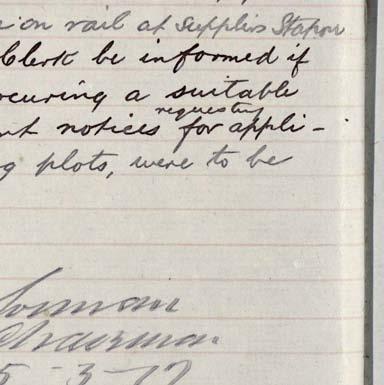 on rail at Suppliers Station
Clerk be informed if
ocuring a suitable
requesting
nt notices for appli-
g plots, were to be
Chairman
5-3-17